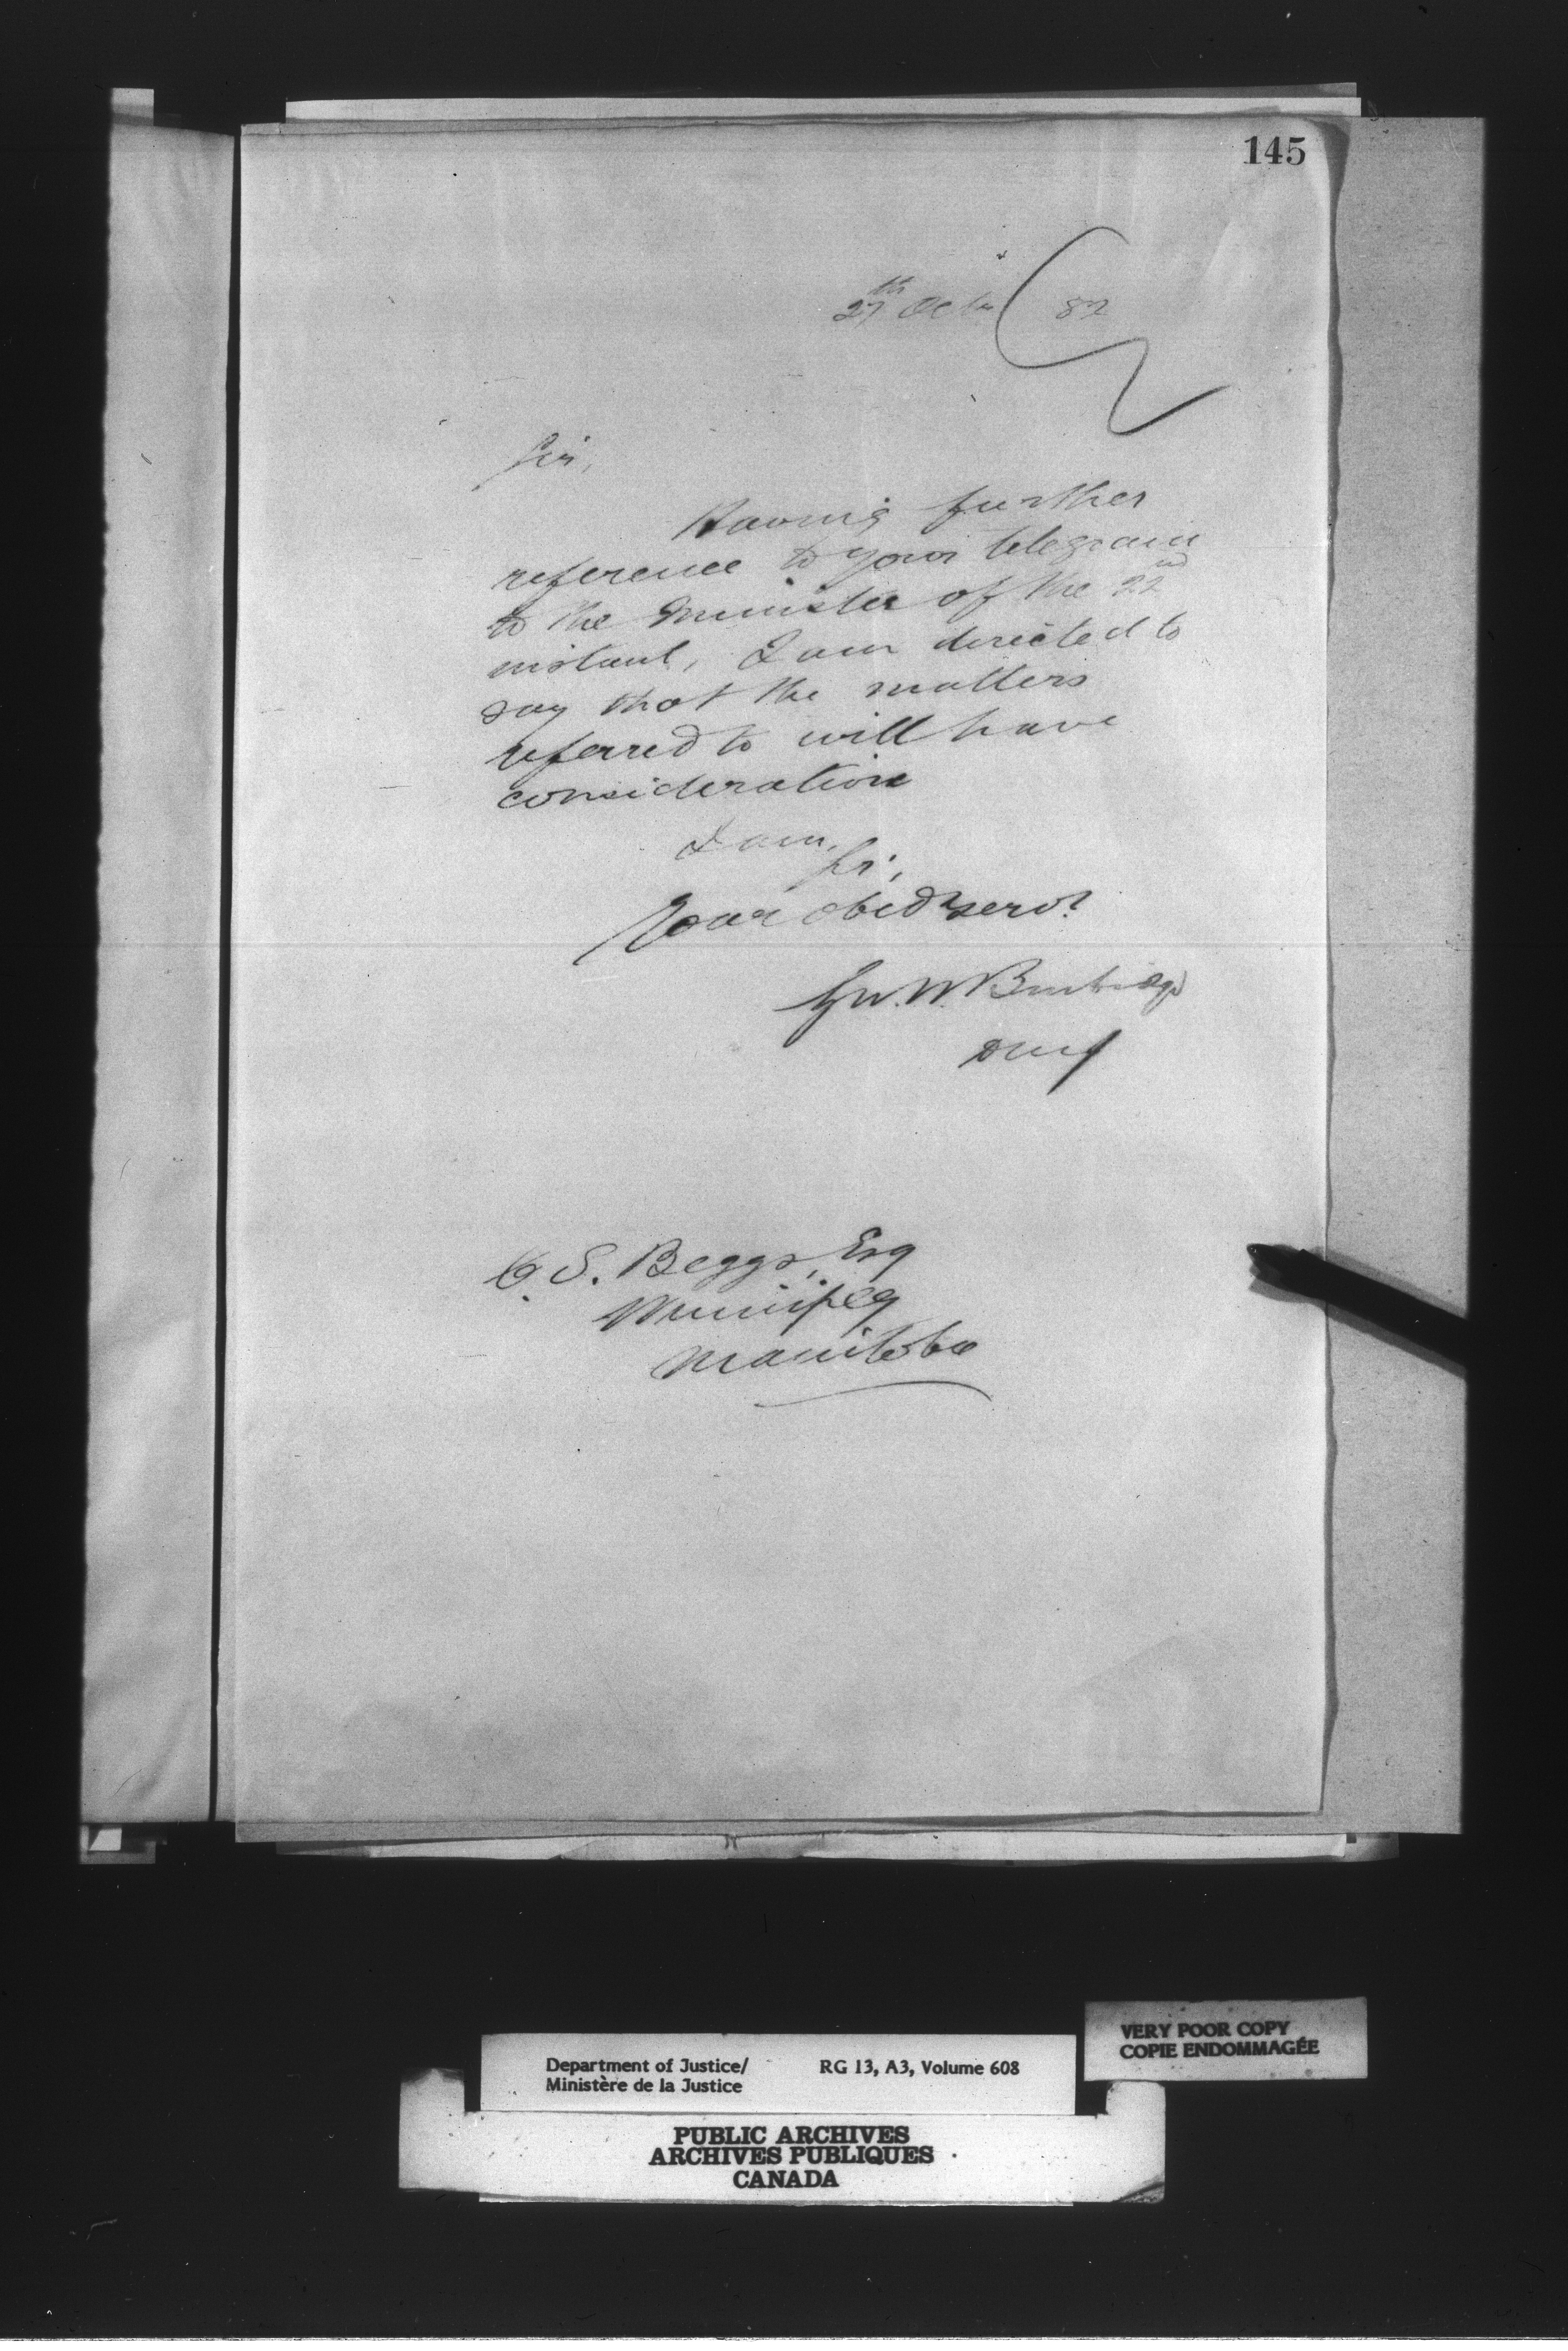 145
27th Octr 82
Sir,
Having further
reference to your telegram
to the Minister of the 22nd
instant, I am directed to
say that the matters
referred to will have
consideration
I am,
Sir,
Your obedt servt
Geo. W. Burbidge
DMJ
C. S. Beggs, Esq
Winnipeg
Manitoba
VERY POOR COPY
COPIE ENDOMMAGÉE
Department of Justice/ RG 13, A3, Volume 608
Ministère de la Justice
PUBLIC ARCHIVES
ARCHIVES PUBLIQUES
CANADA